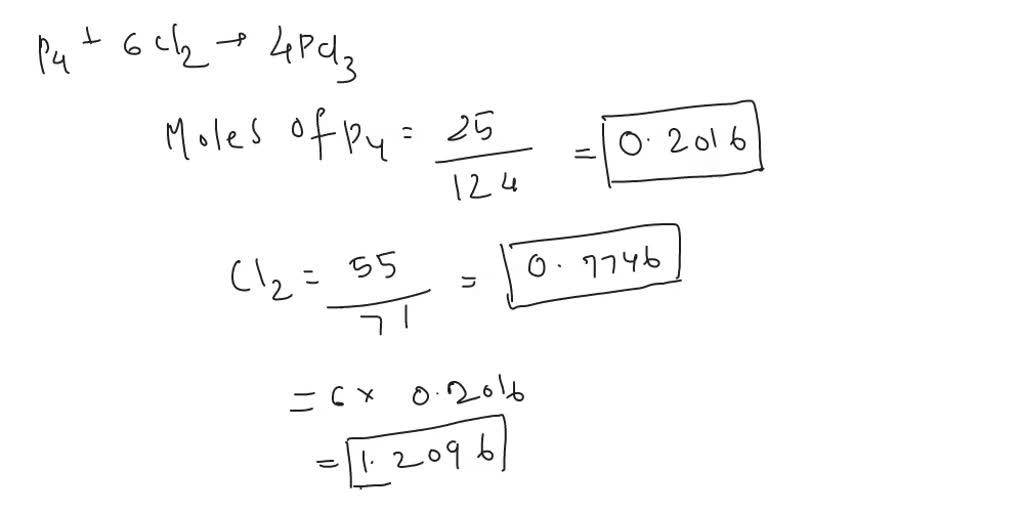 P4 + 6 Cl2 → 4PCl3
Moles of P4 = 25/124 = 0.2016
Cl2 = 55/71 = 0.7746
= 6 × 0.2016
= 1.2096